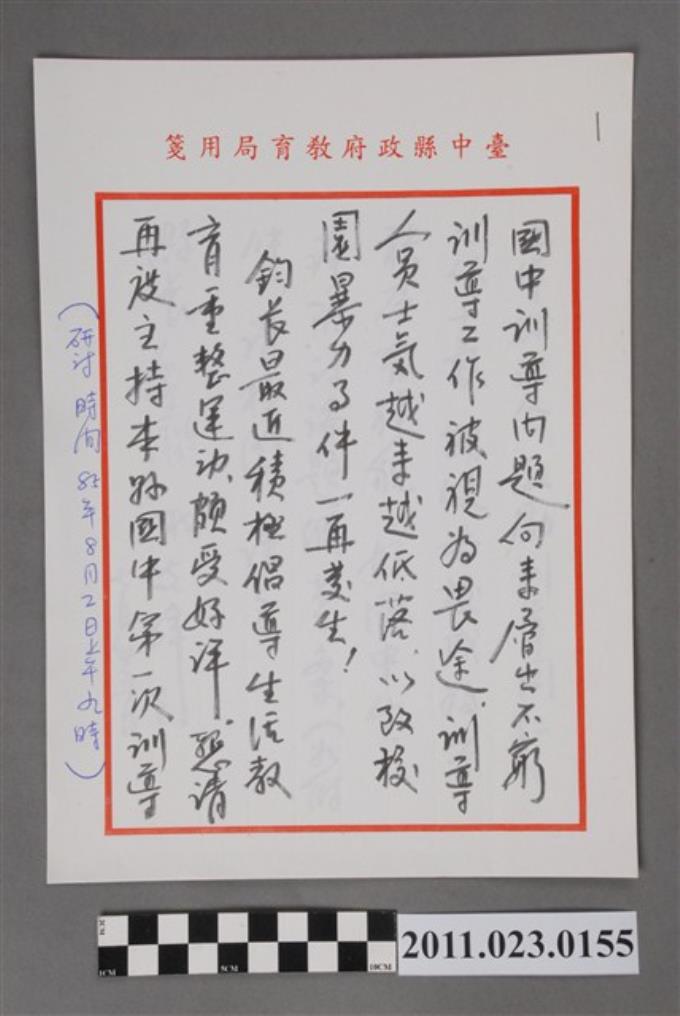 臺中縣政府教育局用箋
國中訓導問題向來層出不窮
訓導工作被視為畏途、訓導
人員士氣越來越低落、以致校
園暴力事件一再發生！
鈞長最近積極倡導生活教
育重整運動、頗受好評、懇請
再設主持本縣國中第一次訓導
（研討 時間 85年8月2日上午九時）
2011.023.0155
1CM
5CM
10CM